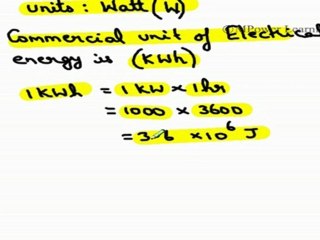 units: Watt (W)
Commercial unit of Electrical
energy is (KWh)
1 KWh = 1 KW × 1 hr
= 1000 × 3600
= 3.6 × 10⁶ J